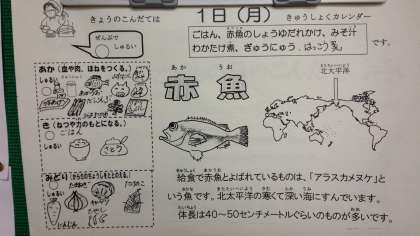 きょうのこんだては
1日(月)
きゅうしょくカレンダー
ぜんぶで
しゅるい
ごはん、赤魚のしょうゆだれかけ、みそ汁
わかたけ煮、ぎゅうにゅう、はっこう乳
です。
あか(血や肉、ほねをつくる。)
しゅるい
き(ねつや力のもとになる。)
しゅるい
ごはん
さとう
みどり(からだのちょうしをととのえる。)
しゅるい
にんじん
あかうお
赤魚
きたたいへいよう
北太平洋
きゅうしょく あかうお
給食で赤魚とよばれているものは、「アラスカメヌケ」と
いう魚です。北太平洋の寒くて深い海にすんでいます。
体長は40〜50センチメートルぐらいのものが多いです。